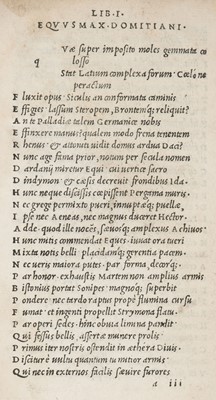 LIB. I.
EQVVS MAX. DOMITIANI.
Væ super imposito moles gemmata co
losso
Stat Latium complexa forum? Cœlo ne
peractum
F luxit opus? Siculis an conformata caminis
E ffigies lassum Steropem, Brontemq; reliquit?
A n te Palladiæ talem Germanice nobis
E ffinxere manus? qualem modo frena tenentem
R henus, & attoniti vidit domus ardua Daci?
N unc age fama prior, notum per secula nomen
D ardanij miretur Equi cui vertice sacro
D indymon, & cæsis decreuit frondibus Ida.
H unc neque discissis cepissent Pergama muris.
N ec grege permixto pueri, innuptæq; puellæ,
I pse nec Aeneas, nec magnus duceret Hector.
A dde quod ille nocēs, sæuosq; amplexus Achiuos
H unc mitis commendat Eques. iuuat ora tueri
M ixta notis belli. placidamq; gerentia pacem.
N ec ueris maiora putes. par forma, decorq;.
P ar honor. exhaustis Martem non amplius armis
B istonius portat Sonipes magnoq; superbit
P ondere nec tardo raptus prope flumina cursu
F umat, et ingenti propellit Strymona flatu.
P ar operi sedes. hinc obuia limina pandit
Q ui fessus bellis, assertæ munere prolis
P rimus iter nostris ostendit in æthera Diuis
D iscit et uultu quantum tu mitior armis
Q ui nec in externos facilis sæuire furores
a iii